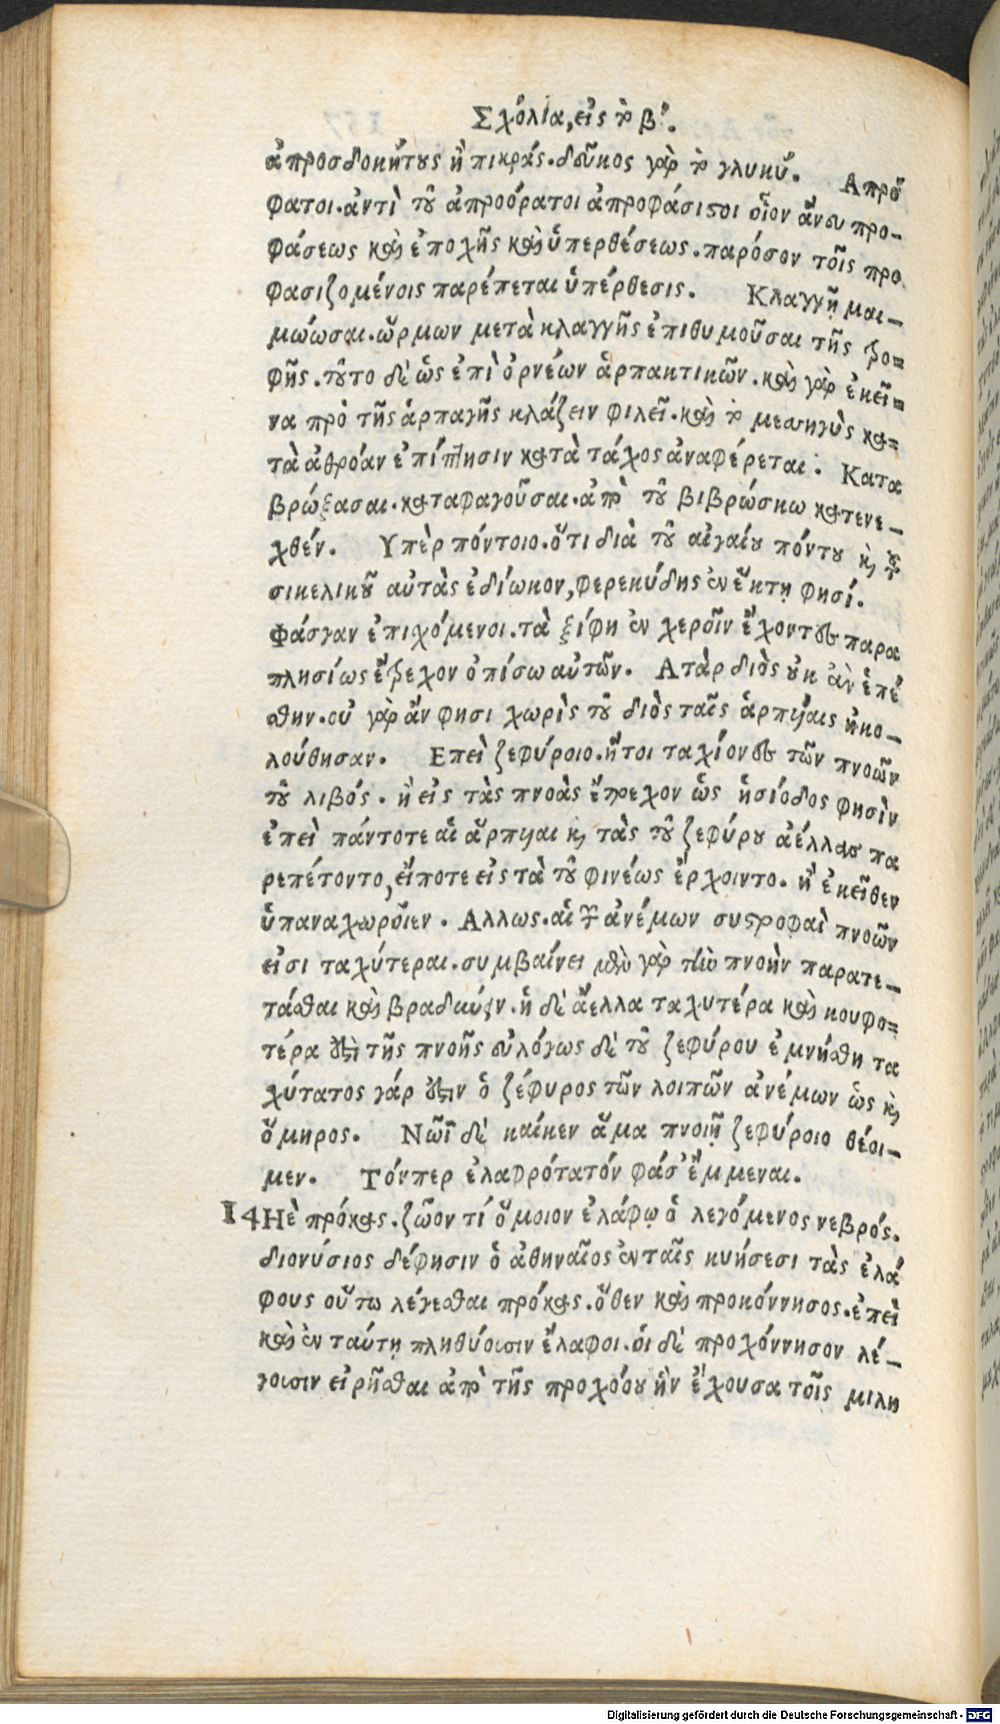 Σχόλια, εἰς τὸ β΄.
ἀπροσδοκήτους ἢ πικράς. δεῦκος γὰρ τὸ γλυκύ. Απρό
φατοι. ἀντὶ τοῦ ἀπροόρατοι ἀπροφάσιστοι οἷον ἄνευ προ-
φάσεως καὶ ἐποχῆς καὶ ὑπερθέσεως. παρόσον τοῖς προ
φασιζομένοις παρέπεται ὑπέρθεσις. Κλαγγῇ μαι-
μώωσαι. ὥρμων μετὰ κλαγγῆς ἐπιθυμοῦσαι τῆς τρο=
φῆς. τοῦτο δὲ ὡς ἐπὶ ὀρνέων ἁρπακτικῶν. καὶ γὰρ ἐκεῖ=
να πρὸ τῆς ἁρπαγῆς κλάζειν φιλεῖ. καὶ τὸ μεσηγὺς κα=
τὰ ἀθρόαν ἐπίπτησιν κατὰ τάχος ἀναφέρεται. Κατα
βρώξασαι. καταφαγοῦσαι. ἀπὸ τοῦ βιβρώσκω κατενε-
χθέν. Υπὲρ πόντοιο. ὅτι διὰ τοῦ αἰγαίου πόντου καὶ τοῦ
σικελικοῦ αὐτὰς ἐδίωκον, φερεκύδης ἐν ἕκτῃ φησί.
Φάσγαν ἐπιχόμενοι. τὰ ξίφη ἐν χεροῖν ἔχοντες παρα
πλησίως ἔτρεχον ὀπίσω αὐτῶν. Ατὰρ διὸς οὐκ ἂν ἑπέ
σθην. οὐ γὰρ ἄν φησι χωρὶς τοῦ διὸς ταῖς ἁρπυίαις ἠκο-
λούθησαν. Επεὶ ζεφύροιο. ἤτοι ταχίονες τῶν πνοῶν
τοῦ λιβός. ἢ εἰς τὰς πνοὰς ἔτρεχον ὡς ἡσίοδος φησὶν
ἐπεὶ πάντοτε αἱ ἅρπυιαι καὶ τὰς τοῦ ζεφύρου ἀέλλας πα
ρεπέτοντο, εἴποτε εἰς τὰ τοῦ φινέως ἔρχοιντο. ἢ ἐκεῖθεν
ὑπαναχωροῖεν. Αλλως. αἱ τῶν ἀνέμων συστροφαὶ πνοῶν
εἰσι ταχύτεραι. συμβαίνει μὲν γὰρ τὴν πνοὴν παρατε-
τάσθαι καὶ βραδύνειν. ἡ δὲ ἄελλα ταχυτέρα καὶ κουφο=
τέρα ἐστὶ τῆς πνοῆς εὐλόγως δὲ τοῦ ζεφύρου ἐμνήσθη τα
χύτατος γάρ ἐστιν ὁ ζέφυρος τῶν λοιπῶν ἀνέμων ὡς καὶ
ὅμηρος. Νῶϊ δὲ καίκεν ἅμα πνοιῇ ζεφύροιο θέοι-
μεν. Τόνπερ ἐλαφρότατόν φάσ' ἔμμεναι.
14 Ηὲ πρόκας. ζῶον τί ὅμοιον ἐλάφῳ ὁ λεγόμενος νεβρός.
διονύσιος δέφησιν ὁ ἀθηναῖος ἐν ταῖς κυήσεσι τὰς ἐλά
φους οὕτω λέγεσθαι πρόκας. ὅθεν καὶ προκόννησος. ἐπεὶ
καὶ ἐν ταύτῃ πληθύουσιν ἔλαφοι. οἱ δὲ προχόννησον λέ-
γουσιν εἰρῆσθαι ἀπὸ τῆς προχόου ἣν ἔχουσα τοῖς μιλη
Digitalisierung gefördert durch die Deutsche Forschungsgemeinschaft - DFG